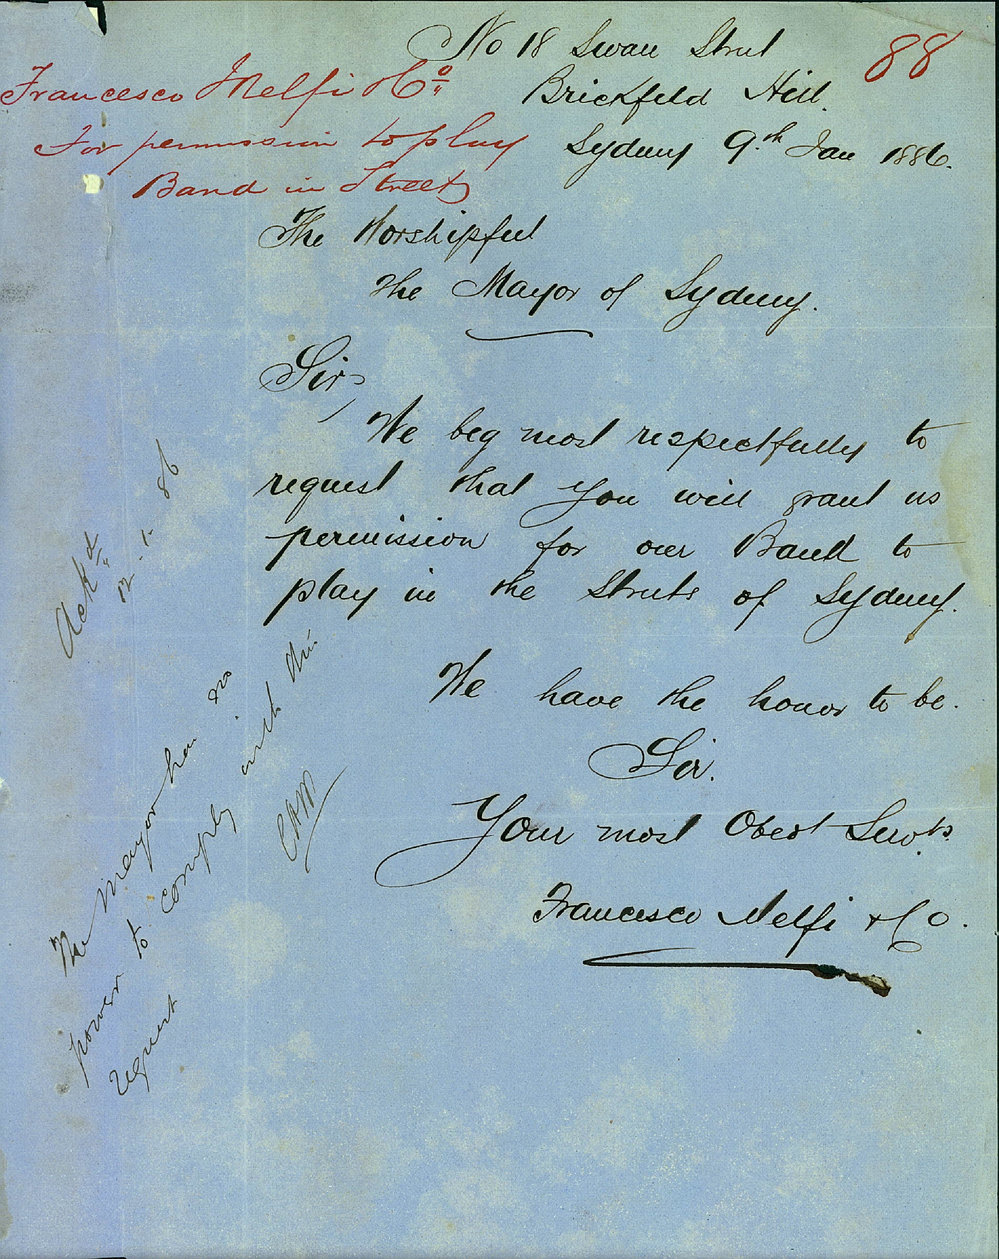 88
No 18 Swan Street
Brickfield Hill.
Sydney 9th Jan 1886.
Francesco Melfi & Co
For permission to play
Band in Streets
The Worshipful
The Mayor of Sydney.
Sir,
We beg most respectfully to
request that you will grant us
permission for our Band to
play in the Streets of Sydney.
We have the honor to be.
Sir.
Your most Obedt Servts.
Francesco Melfi & Co.
Ackd
12.1.86
The Mayor has no
power to comply with this
request